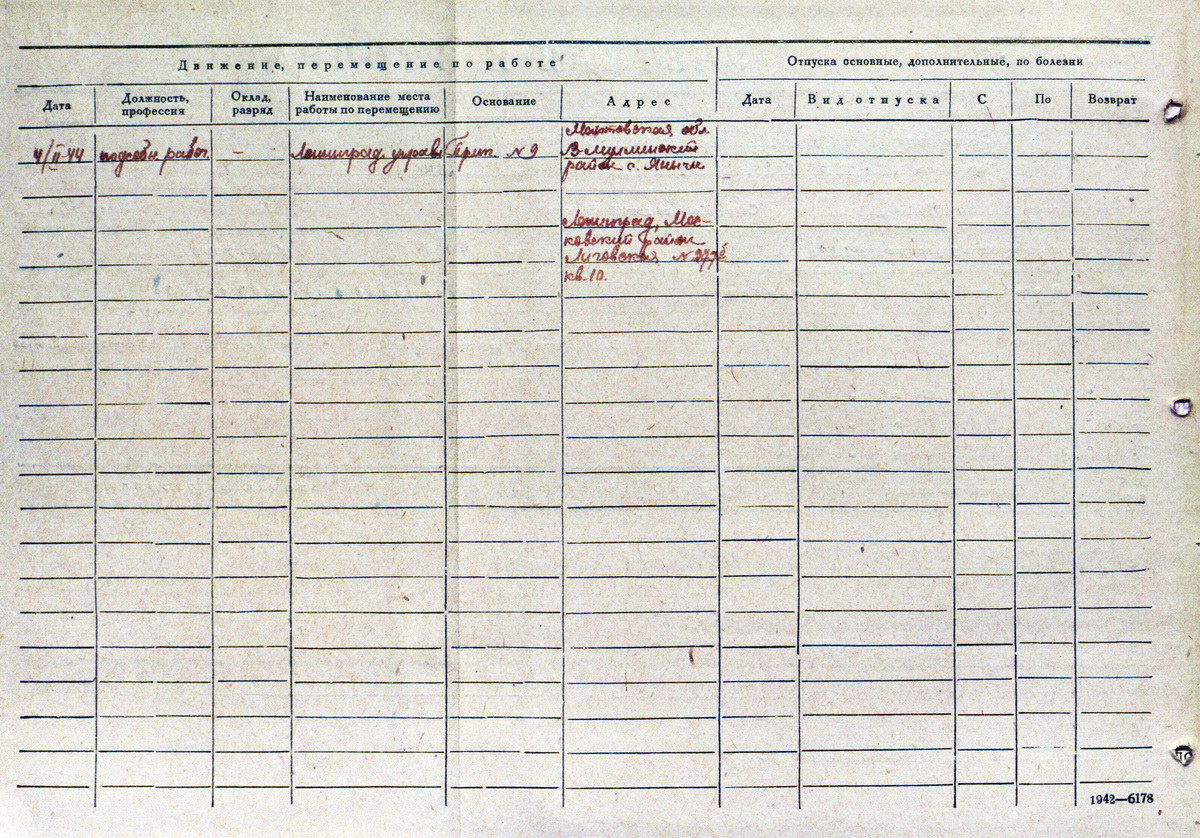 Движение, перемещение по работе
Отпуска основные, дополнительные, по болезни
Дата
Должность, профессия
Оклад, разряд
Наименование места работы по перемещению
Основание
Адрес
Дата
Вид отпуска
С
По
Возврат
4/II-44
подсобн. рабоч.
-
Ленинград. управ.
Прик. №9
обл.
район с. Янычи
Ленинград, Мос-
ковский район
Лиговская №
кв. 10.
1942—6178